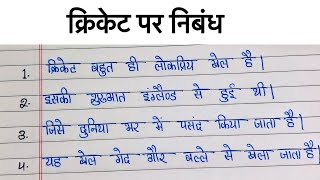 क्रिकेट पर निबंध
1. क्रिकेट बहुत ही लोकप्रिय खेल है।
2. इसकी शुरुआत इंग्लैण्ड से हुई थी।
3. जिसे दुनिया भर में पसंद किया जाता है।
4. यह खेल गेंद और बल्ले से खेला जाता है।